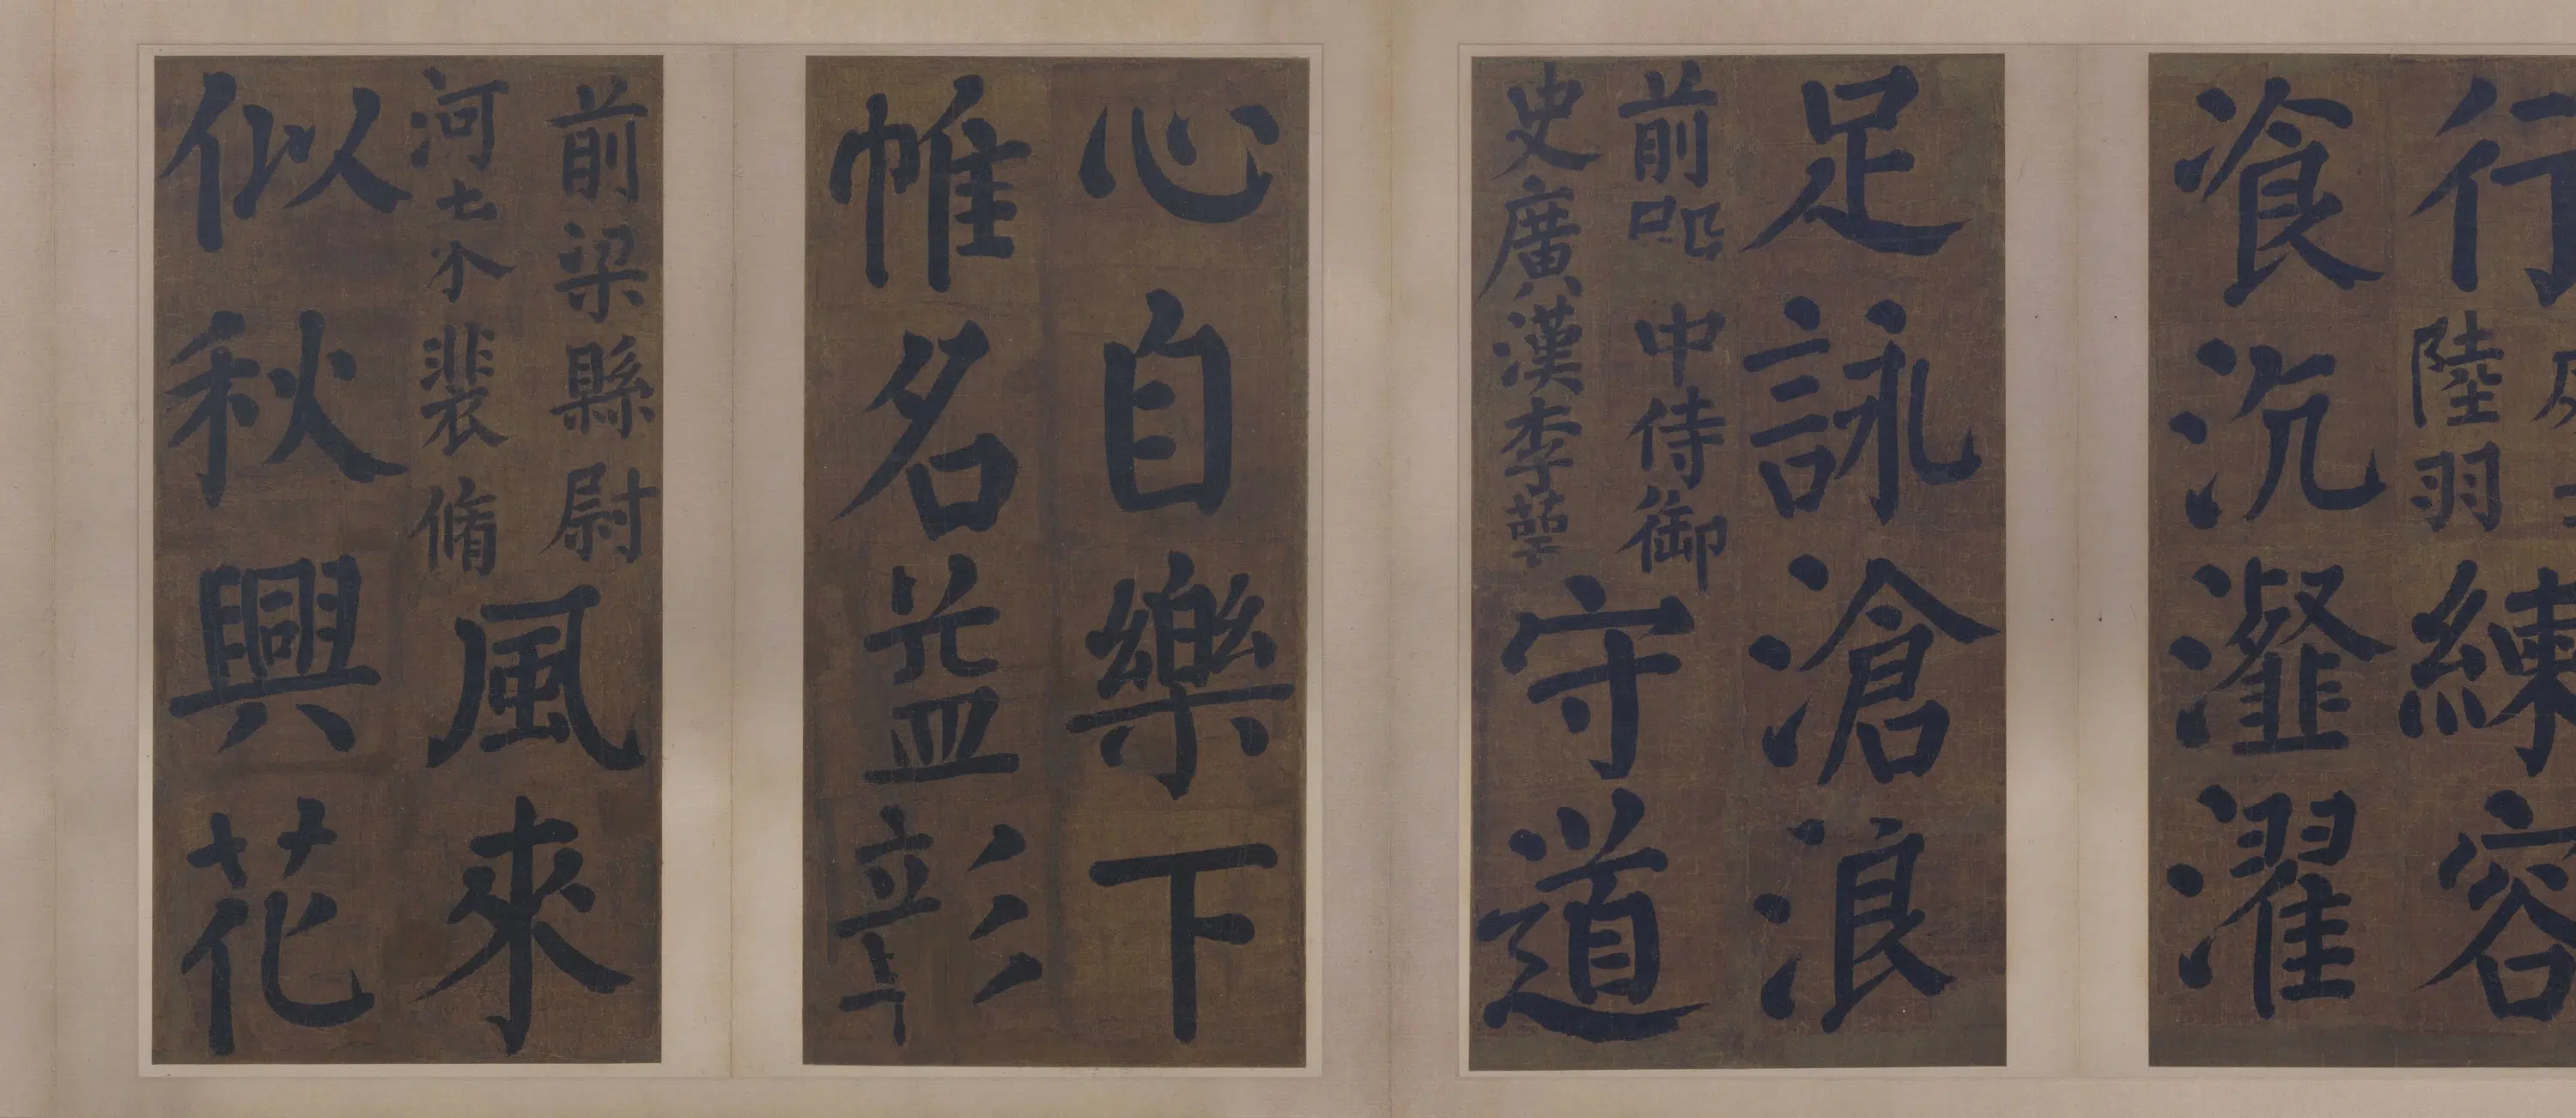 行
陸羽
練容
飡沆瀣濯
足詠滄浪
前 中侍御
史廣漢李萼
守道
心自樂下
帷名益彰
前梁縣尉
河 裴脩
風來
似秋興花